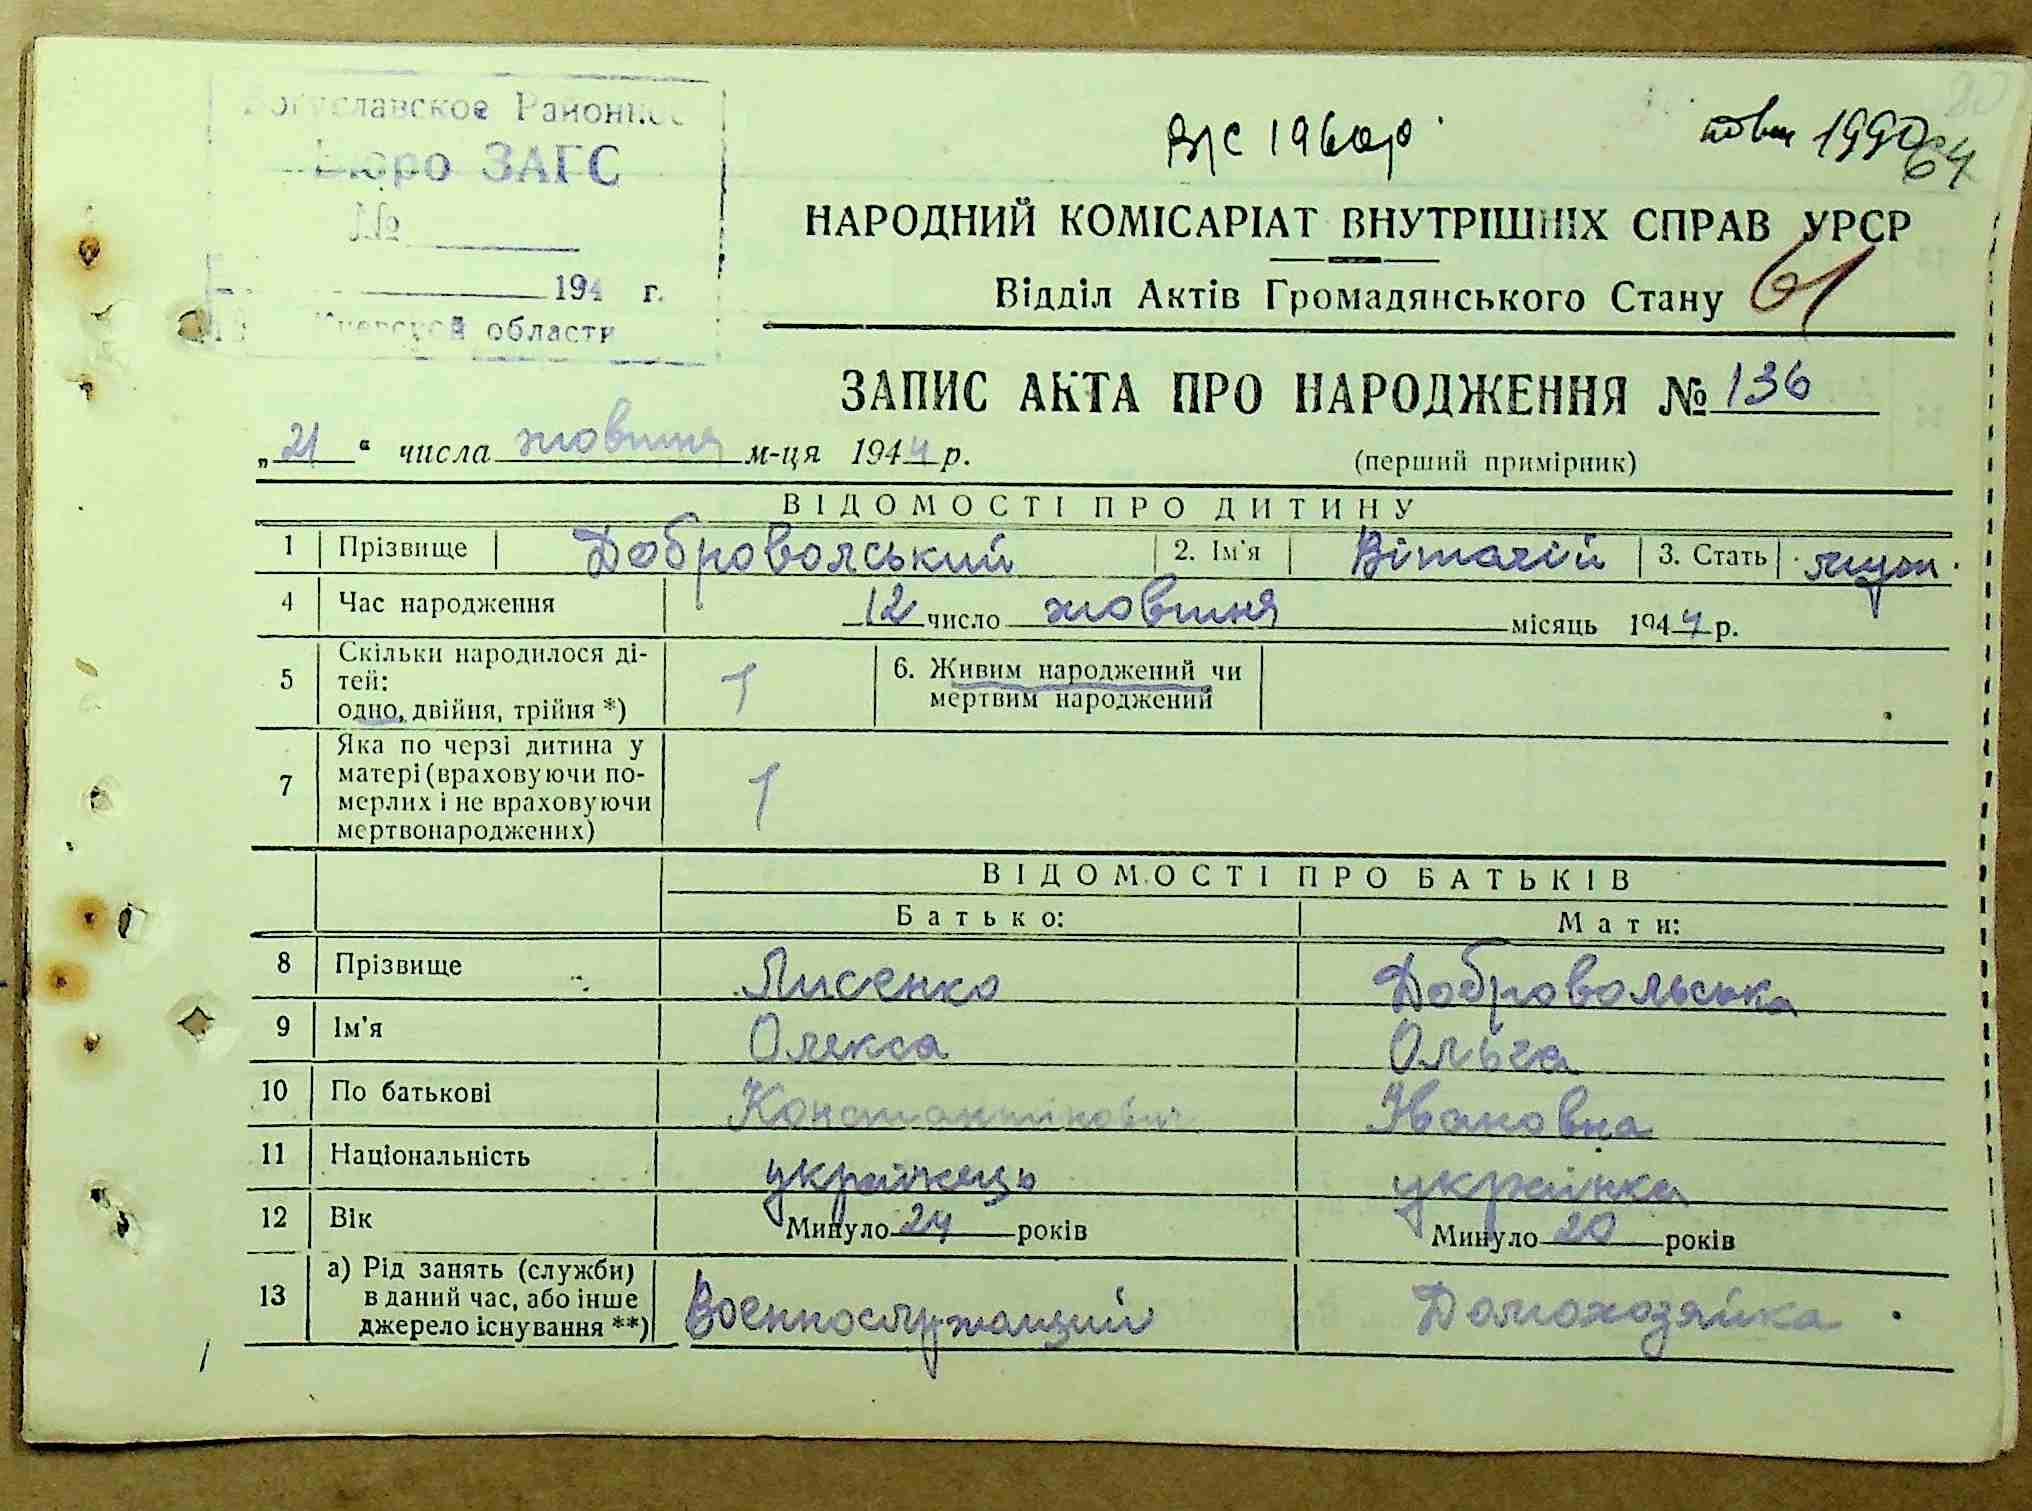 Богуславское Районное
Бюро ЗАГС
№
194 г.
Киевской области
в/с 1960р
повт 1990
64
НАРОДНИЙ КОМІСАРІАТ ВНУТРІШНІХ СПРАВ УРСР
Відділ Актів Громадянського Стану 61
ЗАПИС АКТА ПРО НАРОДЖЕННЯ № 136
„21“ числа жовтня м-ця 1944 р. (перший примірник)
ВІДОМОСТІ ПРО ДИТИНУ
1 Прізвище Добровольський 2. Ім'я Віталій 3. Стать
4 Час народження 12 число жовтня місяць 1944 р.
5 Скільки народилося ді-
тей:
одно, двійня, трійня *) 1
6. Живим народжений чи
мертвим народжений
7 Яка по черзі дитина у
матері (враховуючи по-
мерлих і не враховуючи
мертвонароджених) 1
ВІДОМОСТІ ПРО БАТЬКІВ
Батько: Мати:
8 Прізвище Лисенко Добровольська
9 Ім'я Олекса Ольга
10 По батькові Константінович Івановна
11 Національність українець українка
12 Вік Минуло 24 років Минуло 20 років
13 а) Рід занять (служби)
в даний час, або інше
джерело існування **) Военнослужащий Домохозяйка